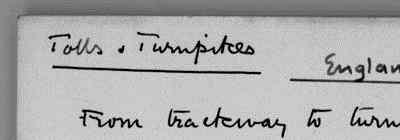 Tolls & Turnpikes
Englan
From trackway to turn